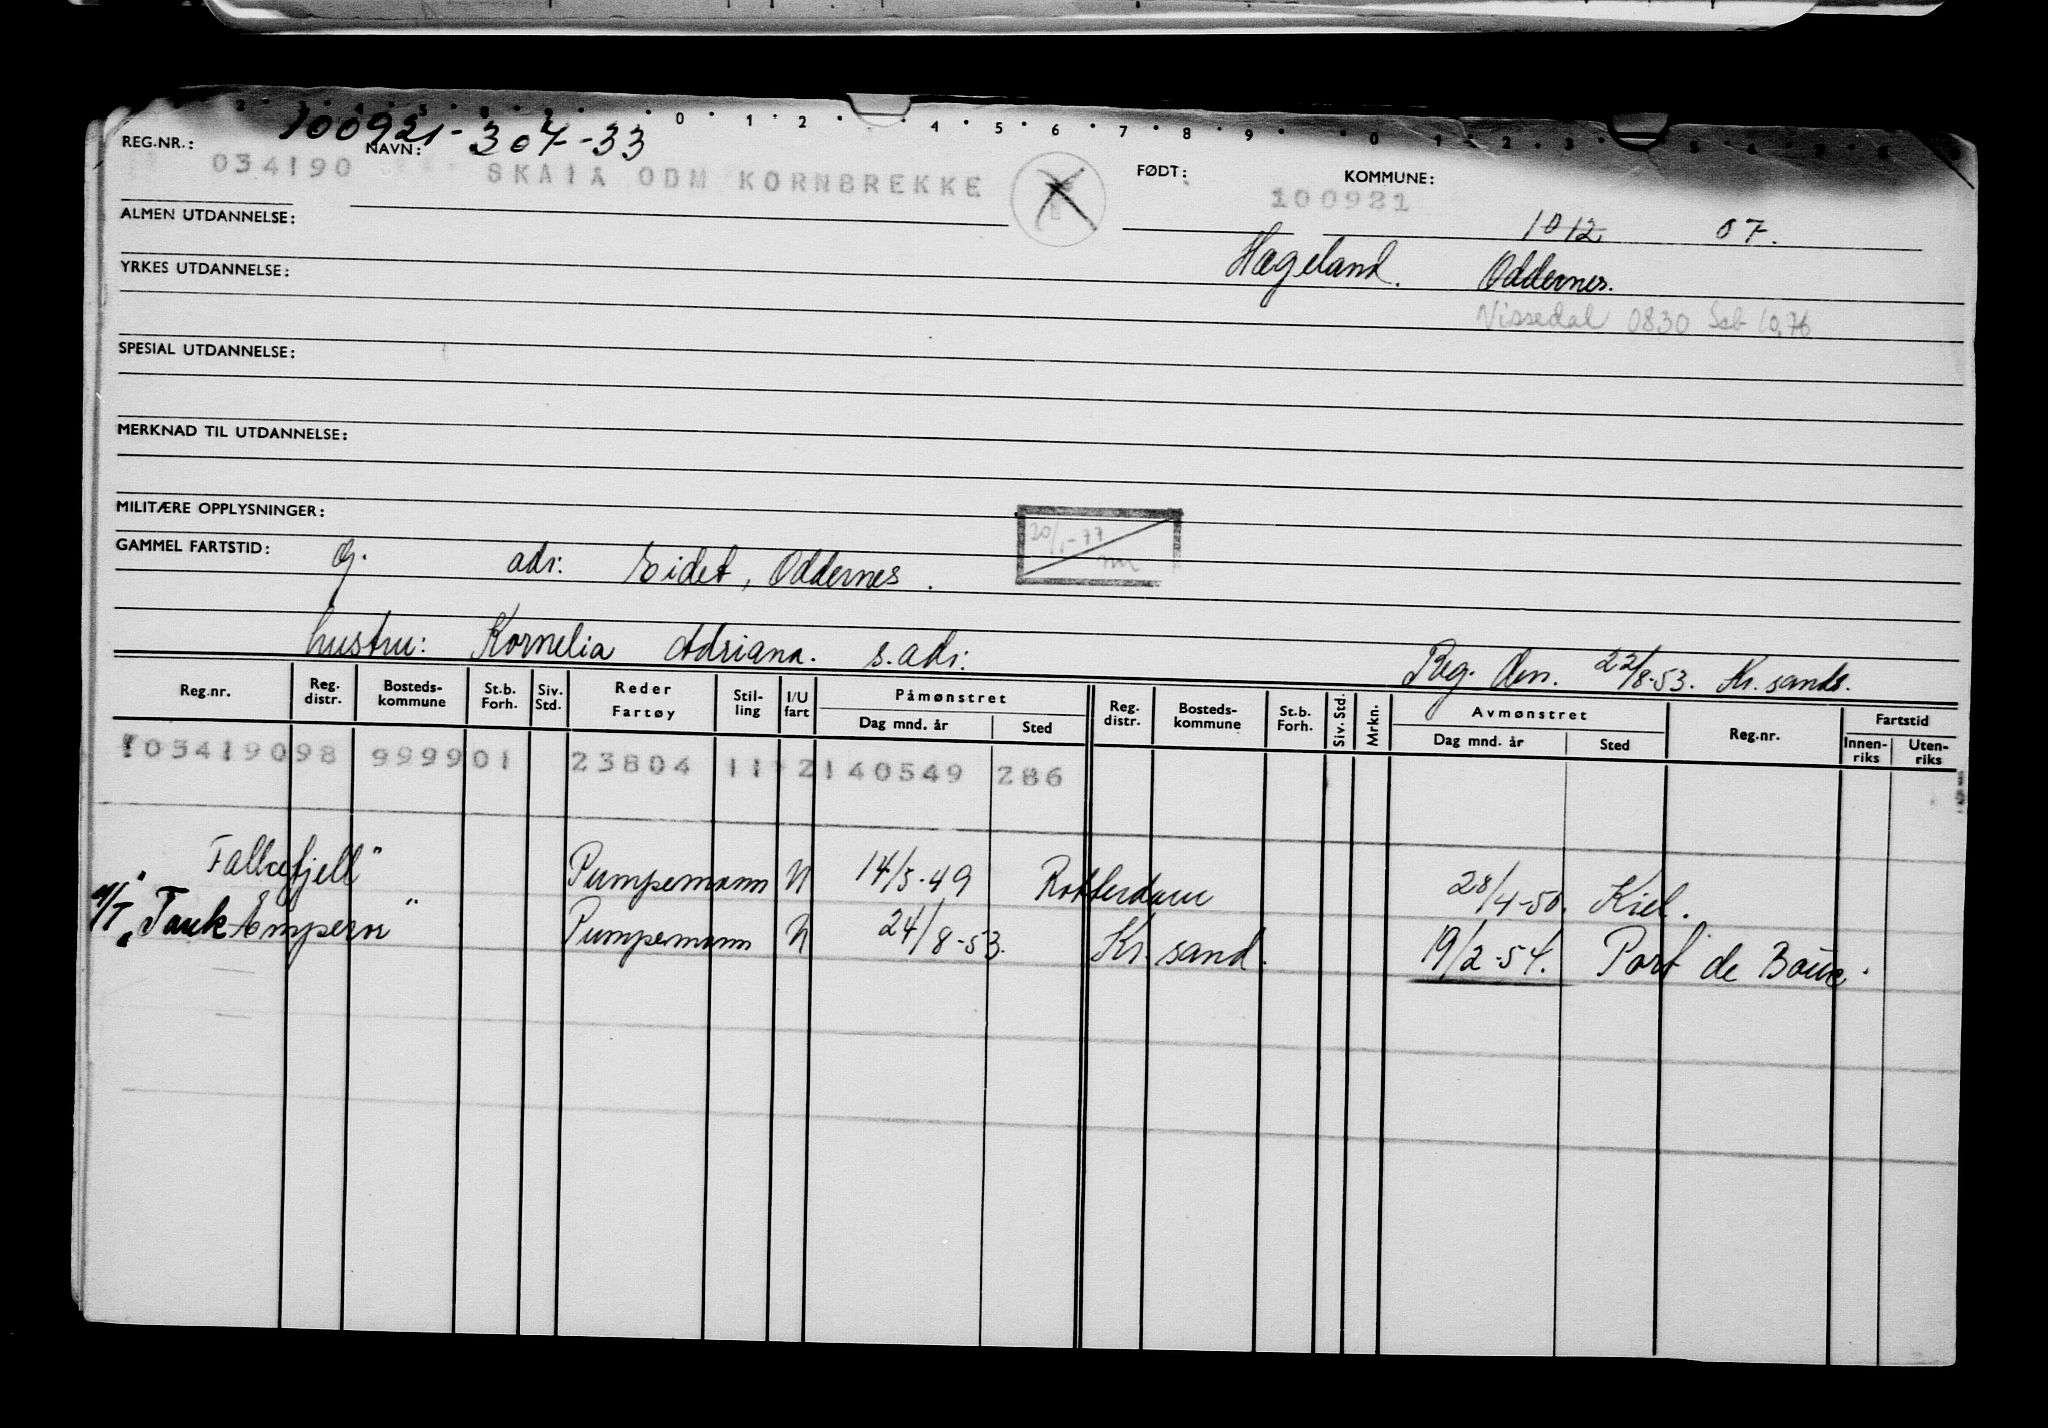 100921-304-33
REG.NR.: NAVN: FØDT: KOMMUNE:
034190 SKAIA ODM KORNBREKKE 100921
ALMEN UTDANNELSE: 1012 07.
Hægeland. Oddernes.
YRKES UTDANNELSE:
Vissedal 0830 Ssb 10,76
SPESIAL UTDANNELSE:
MERKNAD TIL UTDANNELSE:
MILITÆRE OPPLYSNINGER:
20/1-77
GAMMEL FARTSTID: g. adr: Eidet, Oddernes.
hustru: Kornelia Adriana. s.adr. Reg. den. 22/8-53. Kr. sands.
Reg.nr. Reg. distr. Bosteds- kommune St.b. Forh. Siv. Std. Reder Fartøy Stil- ling I/U fart Påmønstret Dag mnd. år Sted Reg. distr. Bosteds- kommune St.b. Forh. Siv. Std. Mrkn. Avmønstret Dag mnd. år Sted Reg.nr. Fartstid Innen- riks Uten- riks
103419098 999901 23804 11 2140549 286
"Falkefjell" Pumpemann U 14/5-49 Rotterdam 28/4-50. Kiel.
M/T "Tank Emperor" Pumpemann U 24/8-53. Kr. sand. 19/2-54. Port de Bouc.